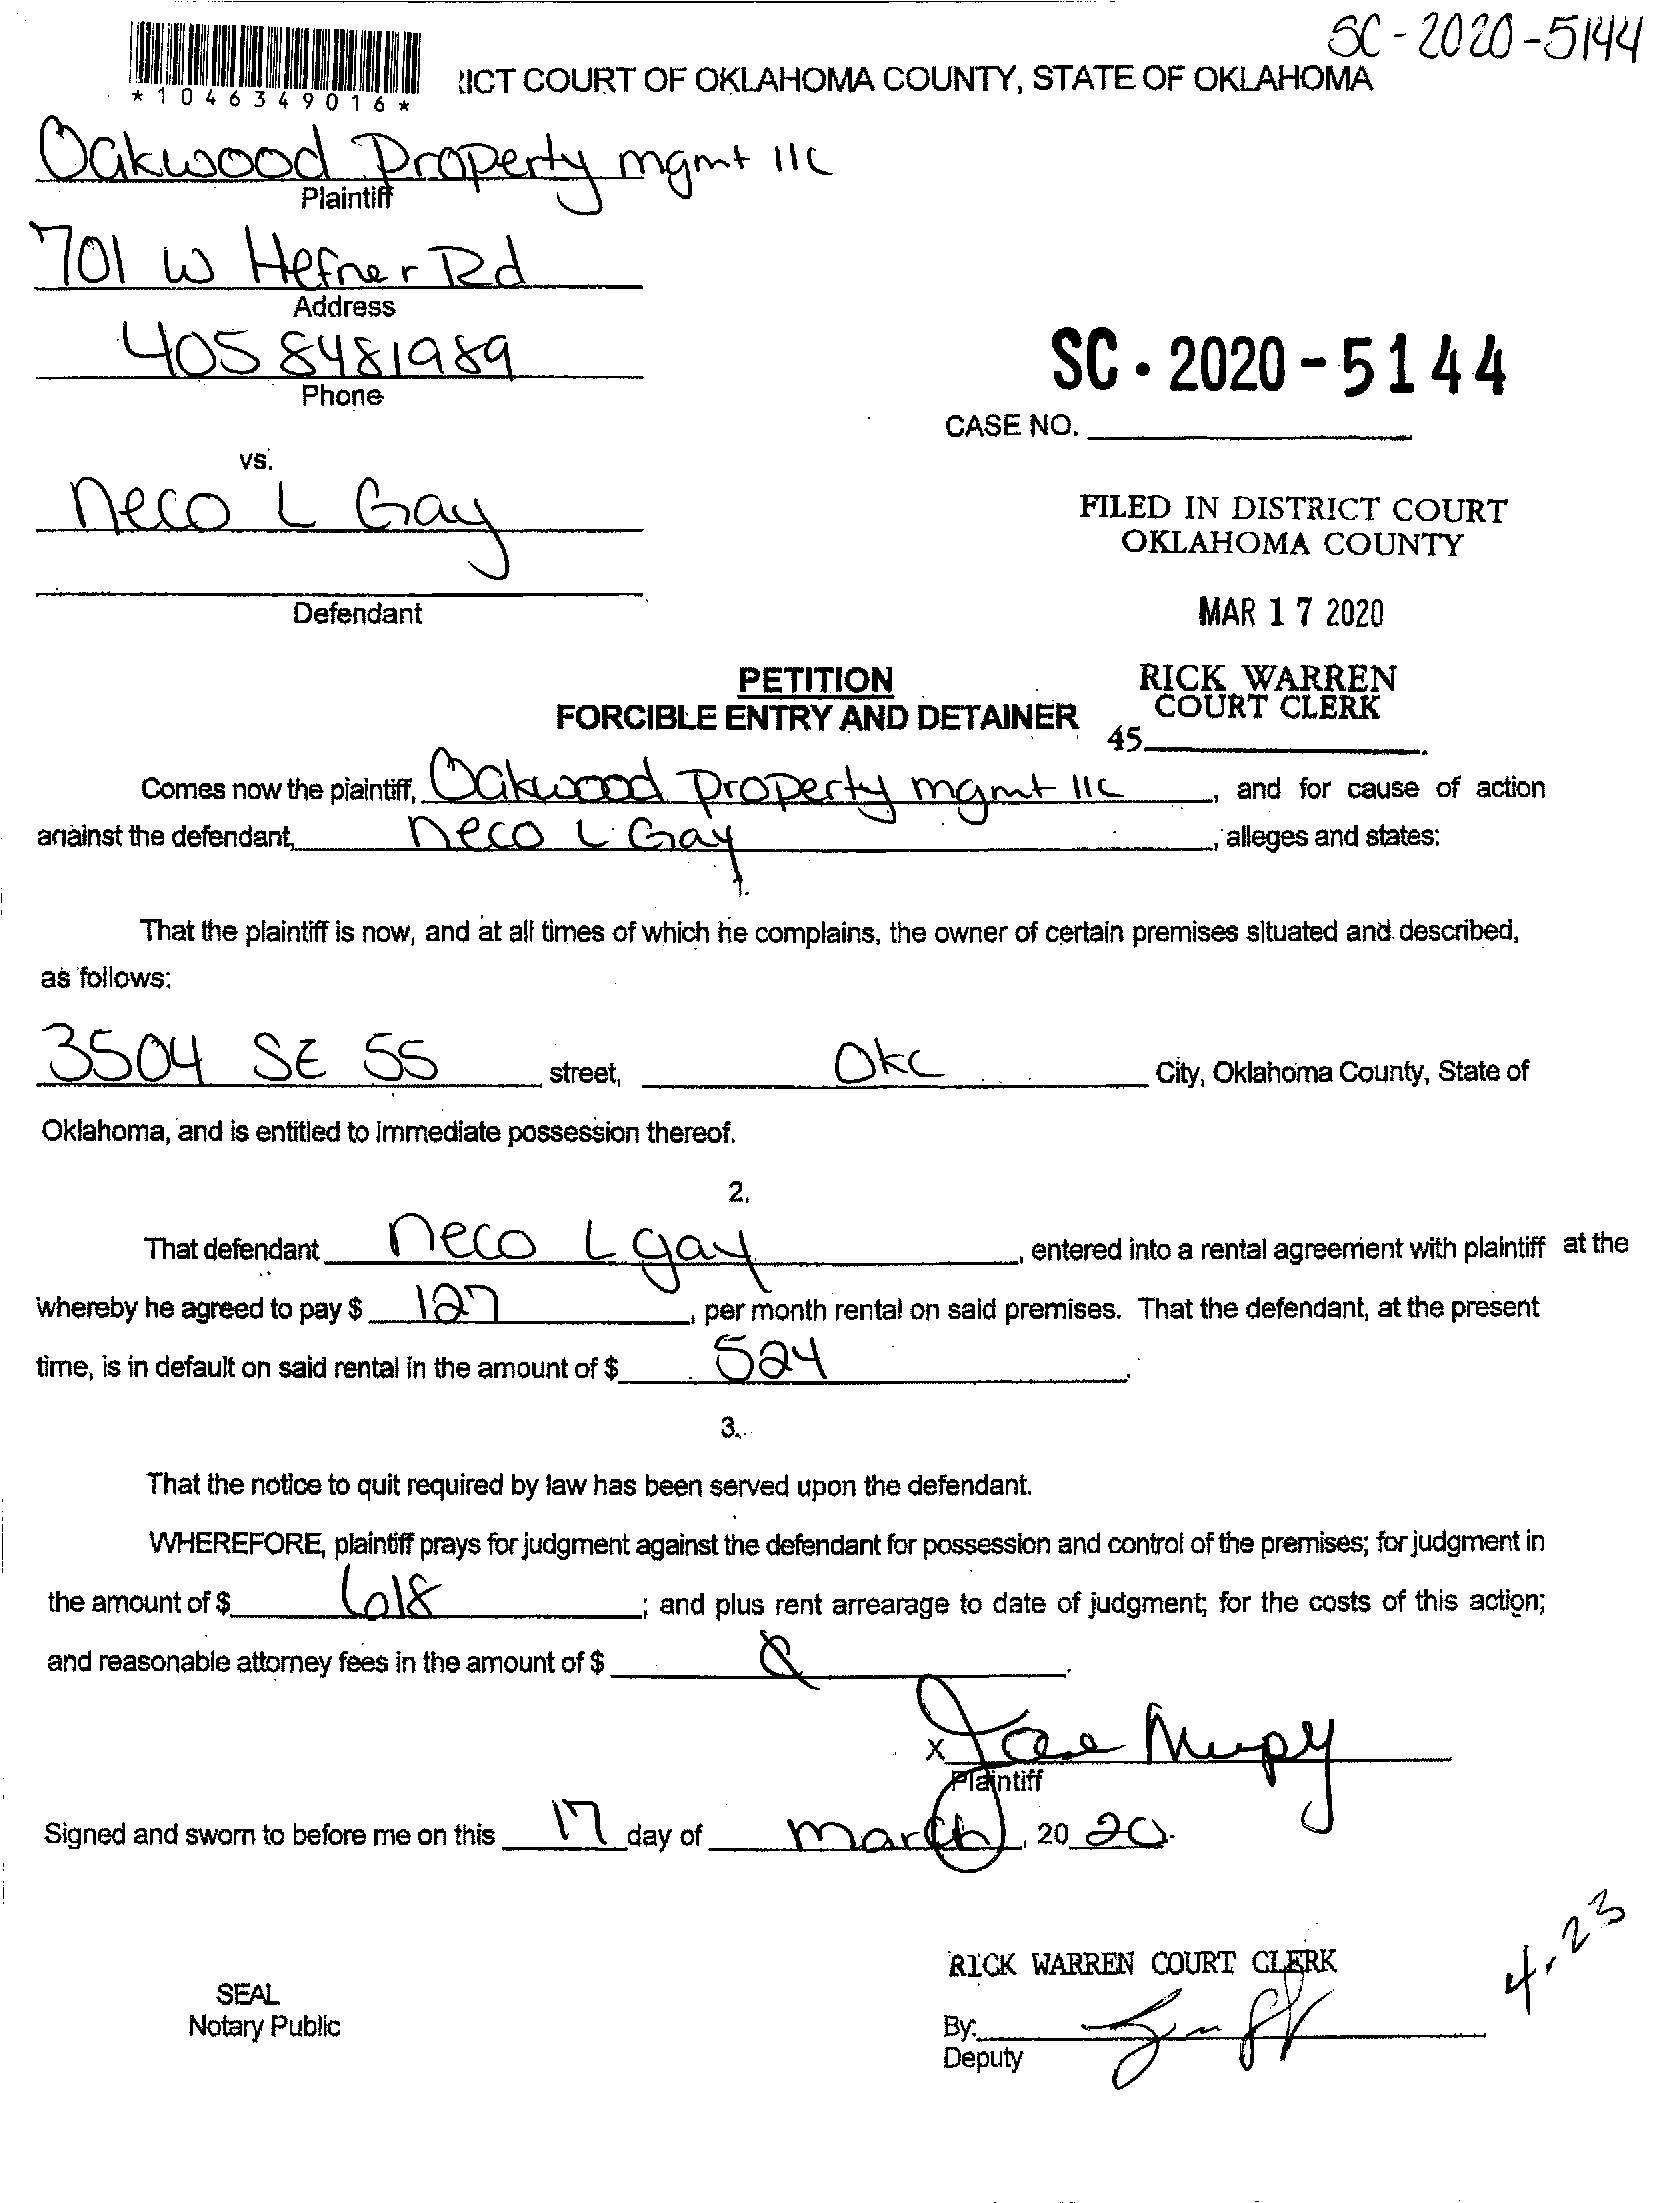 SC-2020-5144
ICT COURT OF OKLAHOMA COUNTY, STATE OF OKLAHOMA
*1046349016*
Oakwood Property mgmt llc
Plaintiff
701 W Hefner Rd
Address
405 8481989
Phone
SC-2020-5144
CASE NO.
vs.
Neco L Gay
FILED IN DISTRICT COURT
OKLAHOMA COUNTY
Defendant
MAR 17 2020
PETITION
FORCIBLE ENTRY AND DETAINER
RICK WARREN
COURT CLERK
45
Comes now the plaintiff, Oakwood property mgmt llc, and for cause of action
against the defendant, Neco L Gay, alleges and states:
1.
That the plaintiff is now, and at all times of which he complains, the owner of certain premises situated and described,
as follows:
3504 SE 55 street, Okc City, Oklahoma County, State of
Oklahoma, and is entitled to immediate possession thereof.
2.
That defendant Neco L gay, entered into a rental agreement with plaintiff at the
whereby he agreed to pay $ 127, per month rental on said premises. That the defendant, at the present
time, is in default on said rental in the amount of $ 524.
3.
That the notice to quit required by law has been served upon the defendant.
WHEREFORE, plaintiff prays for judgment against the defendant for possession and control of the premises; for judgment in
the amount of $ 618; and plus rent arrearage to date of judgment; for the costs of this action;
and reasonable attorney fees in the amount of $
X
Plaintiff
Signed and sworn to before me on this 17 day of March, 2020.
4-23
RICK WARREN COURT CLERK
SEAL
Notary Public
By:
Deputy